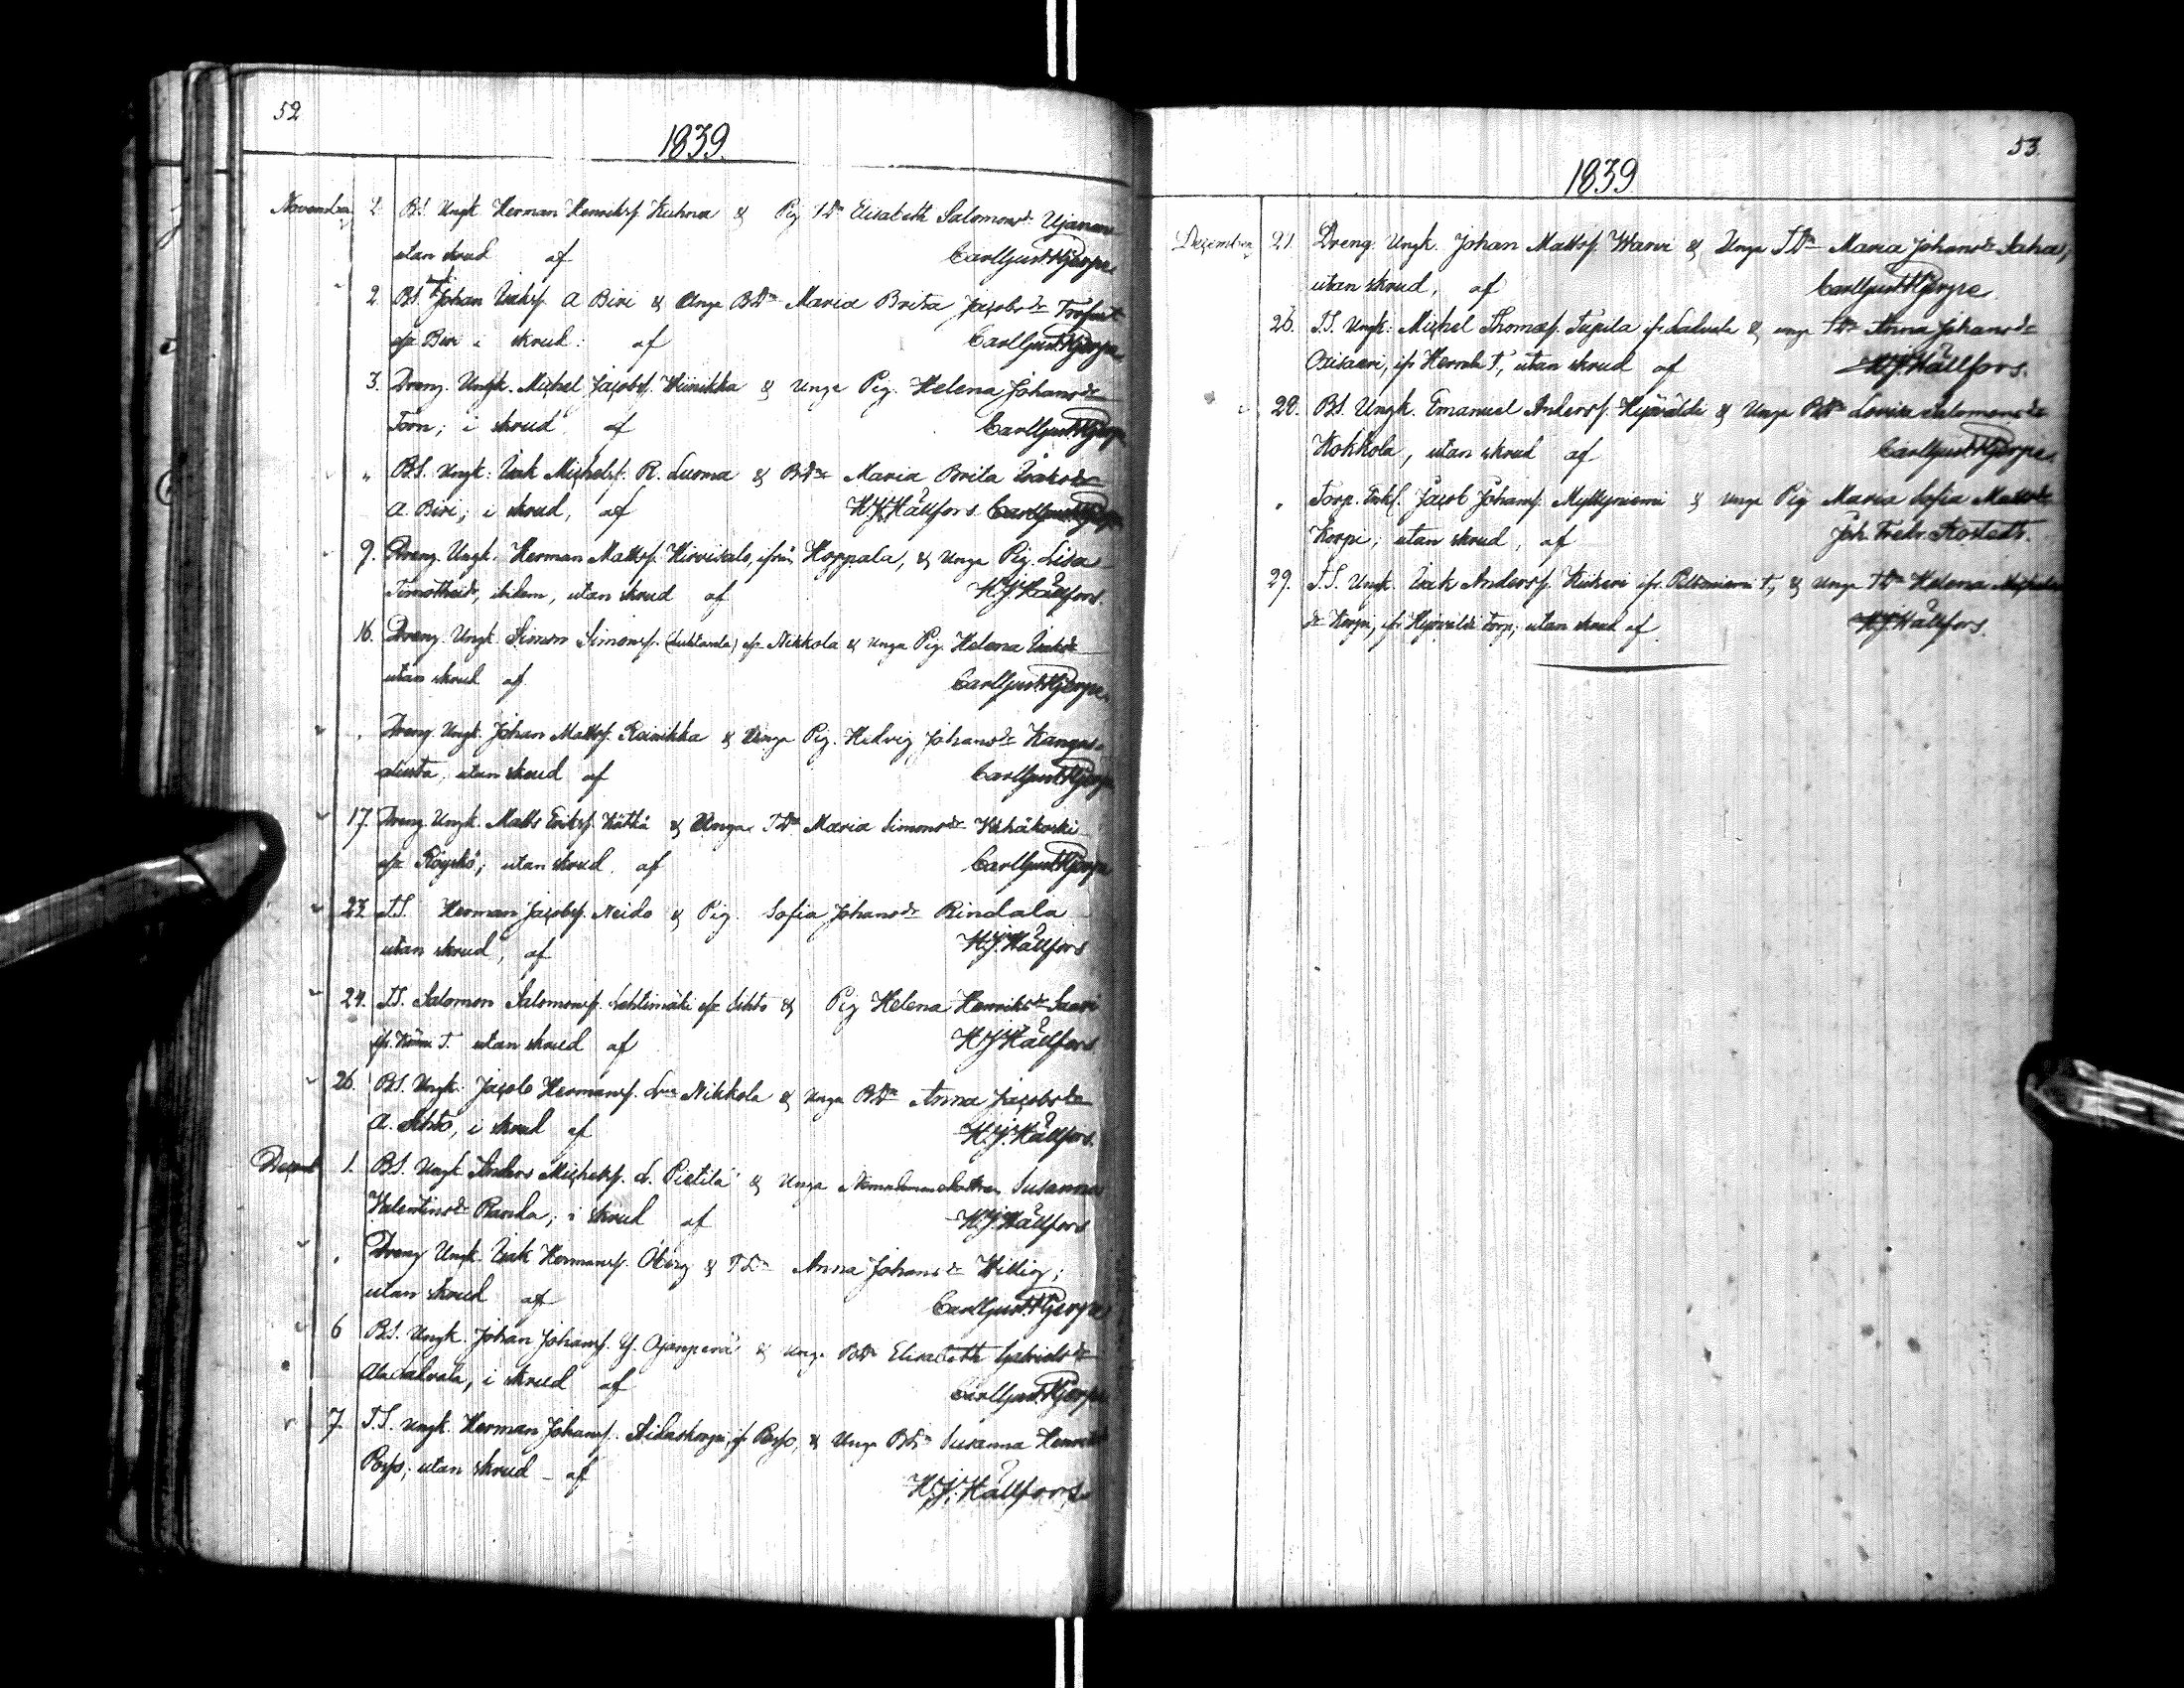 52
1839.
November 2. BS. Ungk. Herman Henriksf. Kuhna & Pig. TDr Elisabeth Salomonsdr Ujanen
utan skrud af Carl Gust. Hjerpe
2. BS. Johan Isaksf. A Biri & Unga BDr Maria Brita Jacobsdr
ifr Biri i skrud: af Carl Gust. Hjerpe
3. Dreng. Ungk. Michel Jacobsf. Wiinikka & Unga Pig. Helena Johansdr
Torn; i skrud af Carl Gust. Hjerpe
" BS. Ungk: Isak Michelsf. R. Luoma & BDr Maria Brita Isaksdr
A. Biri; i skrud, af H.J. Hällfors
9. Dreng. Ungk. Herman Mattsf. Hirvisalo, ifrån Hoppala, & Unga Pig. Lisa
Timotheidr, ibidem, utan skrud af H.J. Hällfors.
16. Dreng. Ungk. Simon Simonsf. (Luhtanla) ifr Nikkola & Unga Pig. Helena Isaksdr
utan skrud af Carl Gust. Hjerpe
" Dreng. Ungk. Johan Mattsf. Reinikka & Unga Pig. Hedvig Johansdr Kangas-
luuta, utan skrud af Carl Gust. Hjerpe
17. Dreng. Ungk. Matts Eriksf. Kättä & Unga TDr Maria Simonsdr Vähäkoski
ifr Röyskö; utan skrud. af Carl Gust. Hjerpe
23. TS. Herman Jacobsf. Neido & Pig. Sofia Johansdr Rindala
utan skrud, af H.J. Hällfors
24. TS. Salomon Salomonsf. Lehtimäki ifr Sihto & Pig Helena Henriksdr Saari
ifr. T. utan skrud af H.J. Hällfors
26. BS. Ungk: Jacob Hermansf. Nikkola & Unga BDr Anna Jacobsdr
A. Sihto, i skrud af H.J. Hällfors.
Decemb 1. BS. Ungk Anders Michelsf. L. Pietilä & Unga Susanna
Valentinsdr Ranta; i skrud af H.J. Hällfors
" Dreng Ungk. Isak Hermansf. Öberg & TDr Anna Johansdr Willig;
utan skrud af Carl Gust. Hjerpe
6 BS. Ungk. Johan Johansf. Y. Ojanperä & Unga BDr Elisabeth Gabrielsdr
Ala Salvala, i skrud af Carl Gust. Hjerpe
7. T.S. Ungk. Herman Johansf. ifr Porho, & Unga BDr Susanna Henriksdr
Porho; utan skrud – af H.J. Hällfors
53.
1839
December 21. Dreng. Ungk. Johan Mattsf. Warri & Unga TDr Maria Johansdr Saha,
utan skrud, af Carl Gust. Hjerpe
26. T.S. Ungk: Michel Thomasf. Tupila ifr Salvala & unga TDr Anna Johansdr
ifr T, utan skrud af H.J. Hällfors.
28. BS. Ungk. Emanuel Andersf. Hyövälti & Unga BDr Lovisa Salomonsdr
Kokkola, utan skrud af Carl Gust. Hjerpe
" Torp. Enkl. Jacob Johansf. Myllyniemi & Unga Pig Maria Sofia Mattsdr
Korpi; utan skrud, af Joh. Fredr. Rostedt.
29. T.S. Ungk. Isak Andersf. Kiikeri ifr Peltoniemi T, & Unga TDr Helena Michels-
dr Korpi, ifr Hyövälti Torp; utan skrud af H.J. Hällfors.